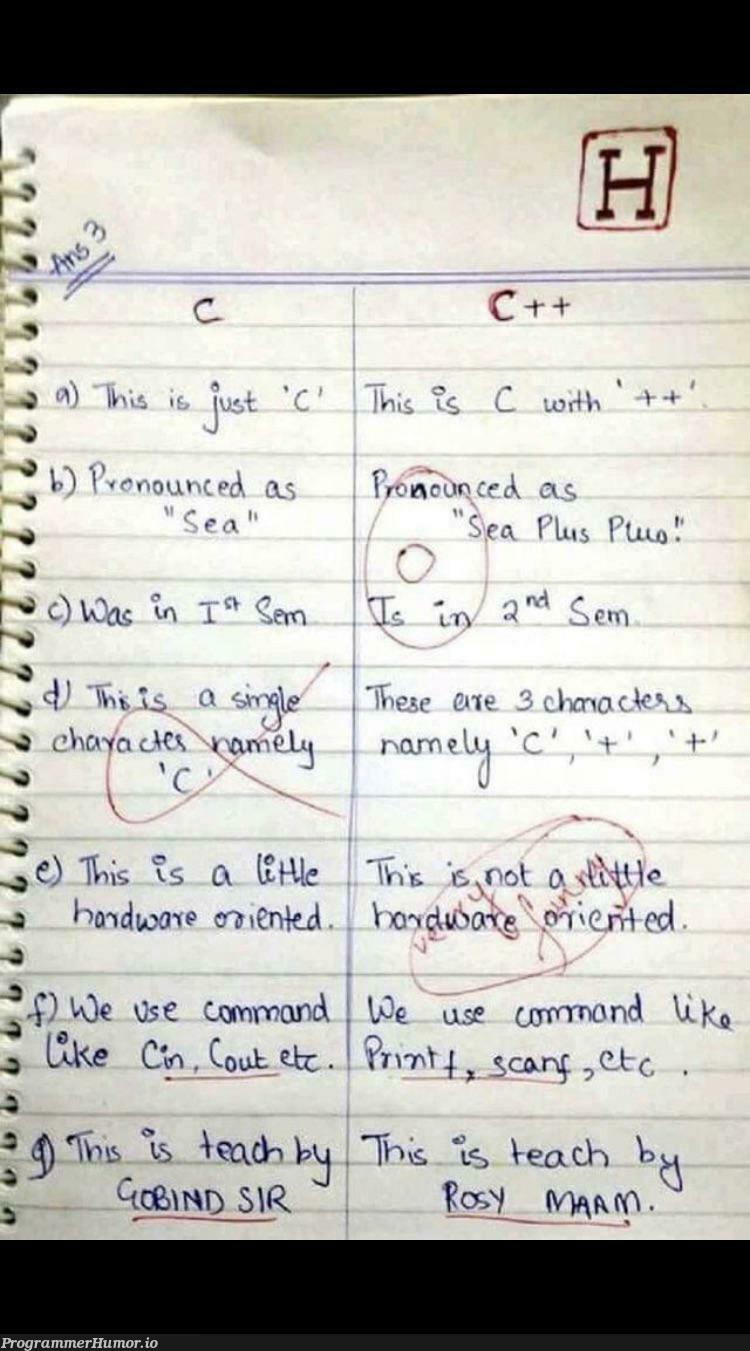 H
Ans 3
C
C++
a) This is just 'C'
This is C with '++'.
b) Pronounced as
"Sea"
Pronounced as
"Sea Plus Plus."
c) Was in Ist Sem
Is in 2nd Sem.
O
d) This is a single
character namely
'C'
These are 3 characters
namely 'C', '+', '+'
e) This is a little
hardware oriented.
This is not a little
hardware oriented.
very funny
f) We use command
like Cin, Cout etc.
We use command like
Printf, scanf, etc.
g) This is teach by
GOBIND SIR
This is teach by
ROSY MAAM.
ProgrammerHumor.io